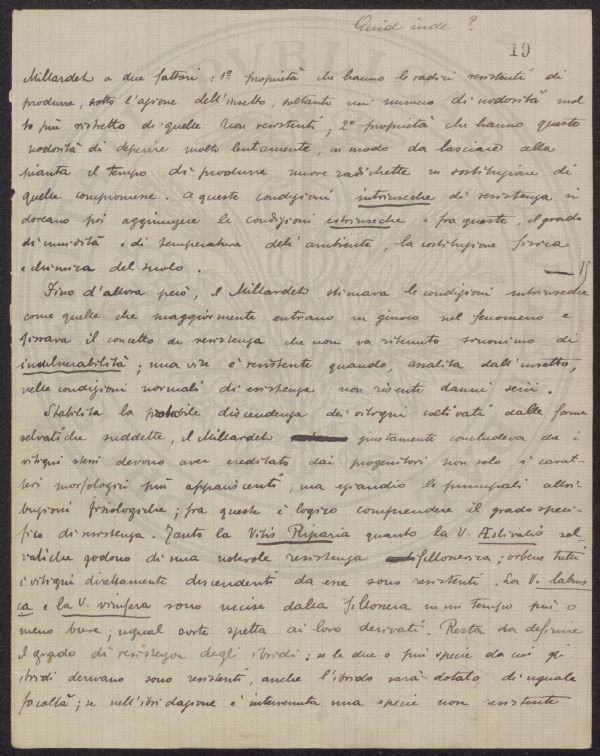 Quid inde ?
19
Millardet a due fattori : 1º proprietà che hanno le radici resistenti di
produrre, sotto l'azione dell'insetto, soltanto un numero di nodosità mol
to più ristretto di quelle non resistenti ; 2º proprietà che hanno queste
nodosità di deperire molto lentamente, in modo da lasciare alla
pianta il tempo di produrre nuove radichette in sostituzione di
quelle compromesse. A queste condizioni intrinseche di resistenza si
doveano poi aggiungere le condizioni estrinseche e fra queste, il grado
di umidità e di temperatura dell'ambiente, la costituzione fisica
e chimica del suolo.
Fino d'allora però, il Millardet stimava le condizioni intrinseche
come quelle che maggiormente entrano in giuoco nel fenomeno e
fissava il concetto di resistenza che non va ritenuto sinonimo di
indulnerabilità ; una vite è resistente quando, assalita dall'insetto,
nelle condizioni normali di esistenza non risente danni serii.
Stabilita la probabile discendenza dei vitigni coltivati dalle forme
selvatiche suddette, il Millardet giustamente concludeva che i
vitigni stessi devono aver ereditato dai progenitori non solo i carat-
teri morfologici più appariscenti, ma eziandio le principali attri-
buzioni fisiologiche ; fra queste è logico comprendere il grado speci-
fico di resistenza. Tanto la Vitis Riparia quanto la V. Æstivalis sel-
vatiche godono di una notevole resistenza fillosserica ; orbene tutti
i vitigni direttamente discendenti da esse sono resistenti. La V. labrus
ca e la V. vinifera sono uccise dalla fillossera in un tempo più o
meno breve ; ugual sorte spetta ai loro derivati. Resta da definire
il grado di resistenza degli ibridi : se le due o più specie da cui gli
ibridi derivano sono resistenti, anche l'ibrido sarà dotato di uguale
facoltà ; se nell'ibridazione è intervenuta una specie non resistente